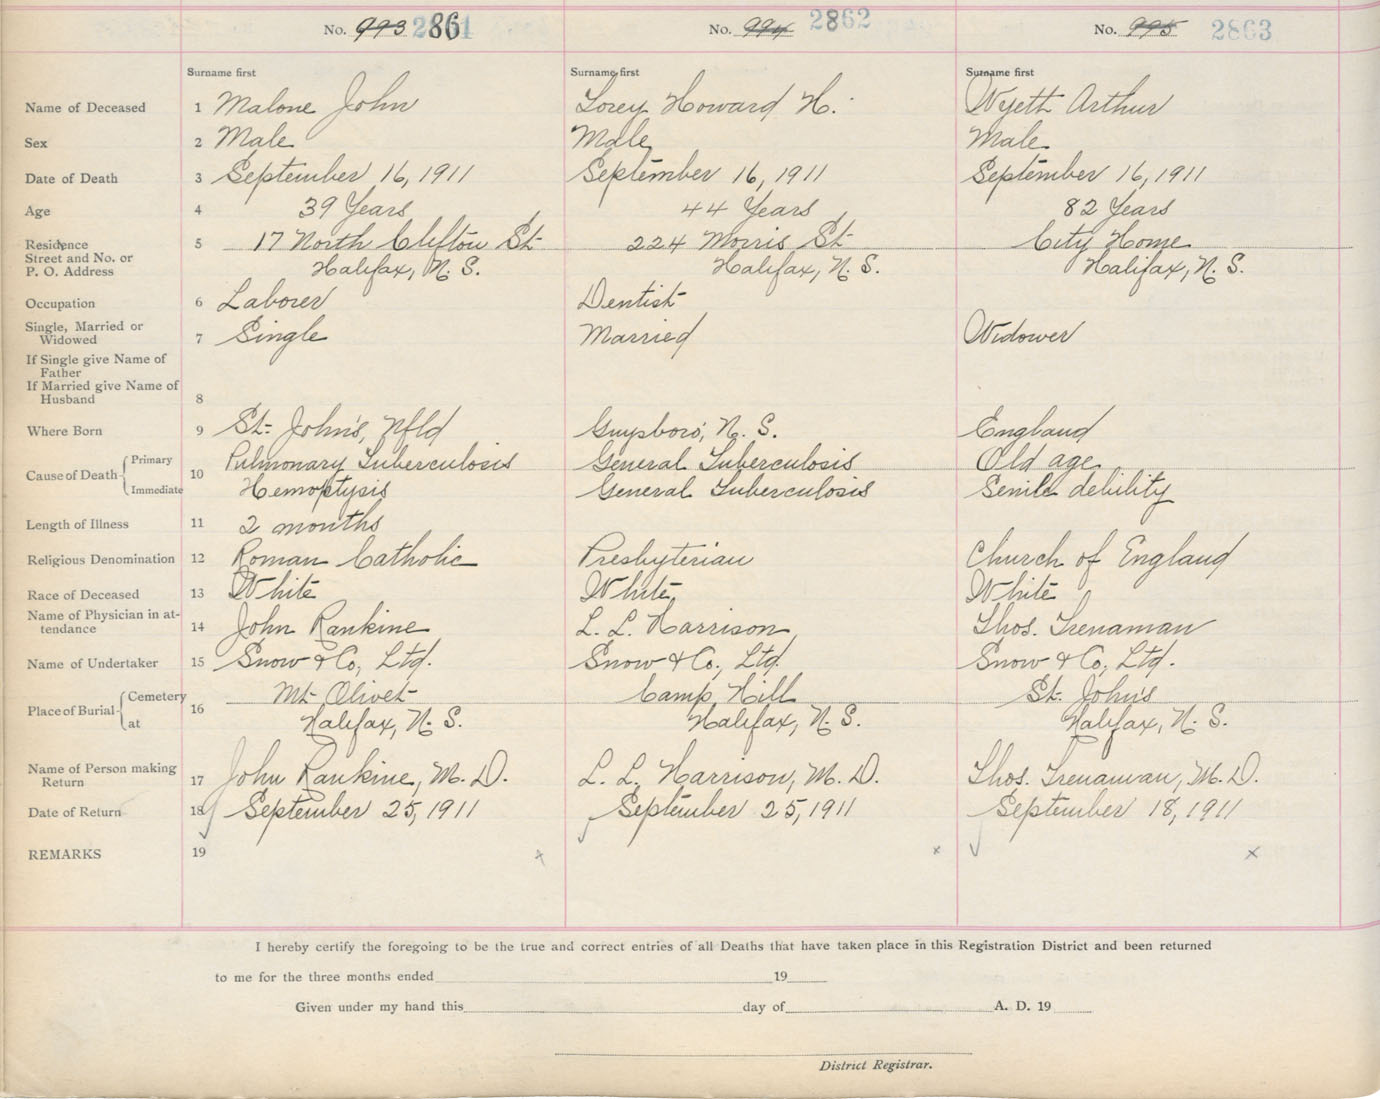 No. 993 2861 No. 994 2862 No. 995 2863
Surname first Surname first Surname first
Name of Deceased 1 Malone John Lorey Howard H. Wyeth Arthur
Sex 2 Male Male Male
Date of Death 3 September 16, 1911 September 16, 1911 September 16, 1911
Age 4 39 Years 44 Years 82 Years
Residence 5 17 North Clifton St 224 Morris St City Home
Street and No. or
P. O. Address Halifax, N. S. Halifax, N. S. Halifax, N. S.
Occupation 6 Laborer Dentist
Single, Married or
Widowed 7 Single Married Widower
If Single give Name of
Father
If Married give Name of
Husband 8
Where Born 9 St. John's, Nfld Guysboro, N. S. England
Cause of Death 10 Primary Pulmonary Tuberculosis General Tuberculosis Old age
Immediate Hemoptysis General Tuberculosis Senile debility
Length of Illness 11 2 months
Religious Denomination 12 Roman Catholic Presbyterian Church of England
Race of Deceased 13 White White White
Name of Physician in at-
tendance 14 John Rankine L. L. Harrison Thos. Trenaman
Name of Undertaker 15 Snow & Co, Ltd. Snow & Co., Ltd. Snow & Co, Ltd.
Place of Burial 16 Cemetery Mt Olivet Camp Hill St. John's
at Halifax, N. S. Halifax, N. S. Halifax, N. S.
Name of Person making
Return 17 John Rankine, M. D. L. L. Harrison, M. D. Thos. Trenaman, M. D.
Date of Return 18 September 25, 1911 September 25, 1911 September 18, 1911
REMARKS 19 x x x
I hereby certify the foregoing to be the true and correct entries of all Deaths that have taken place in this Registration District and been returned
to me for the three months ended 19
Given under my hand this day of A. D. 19
District Registrar.